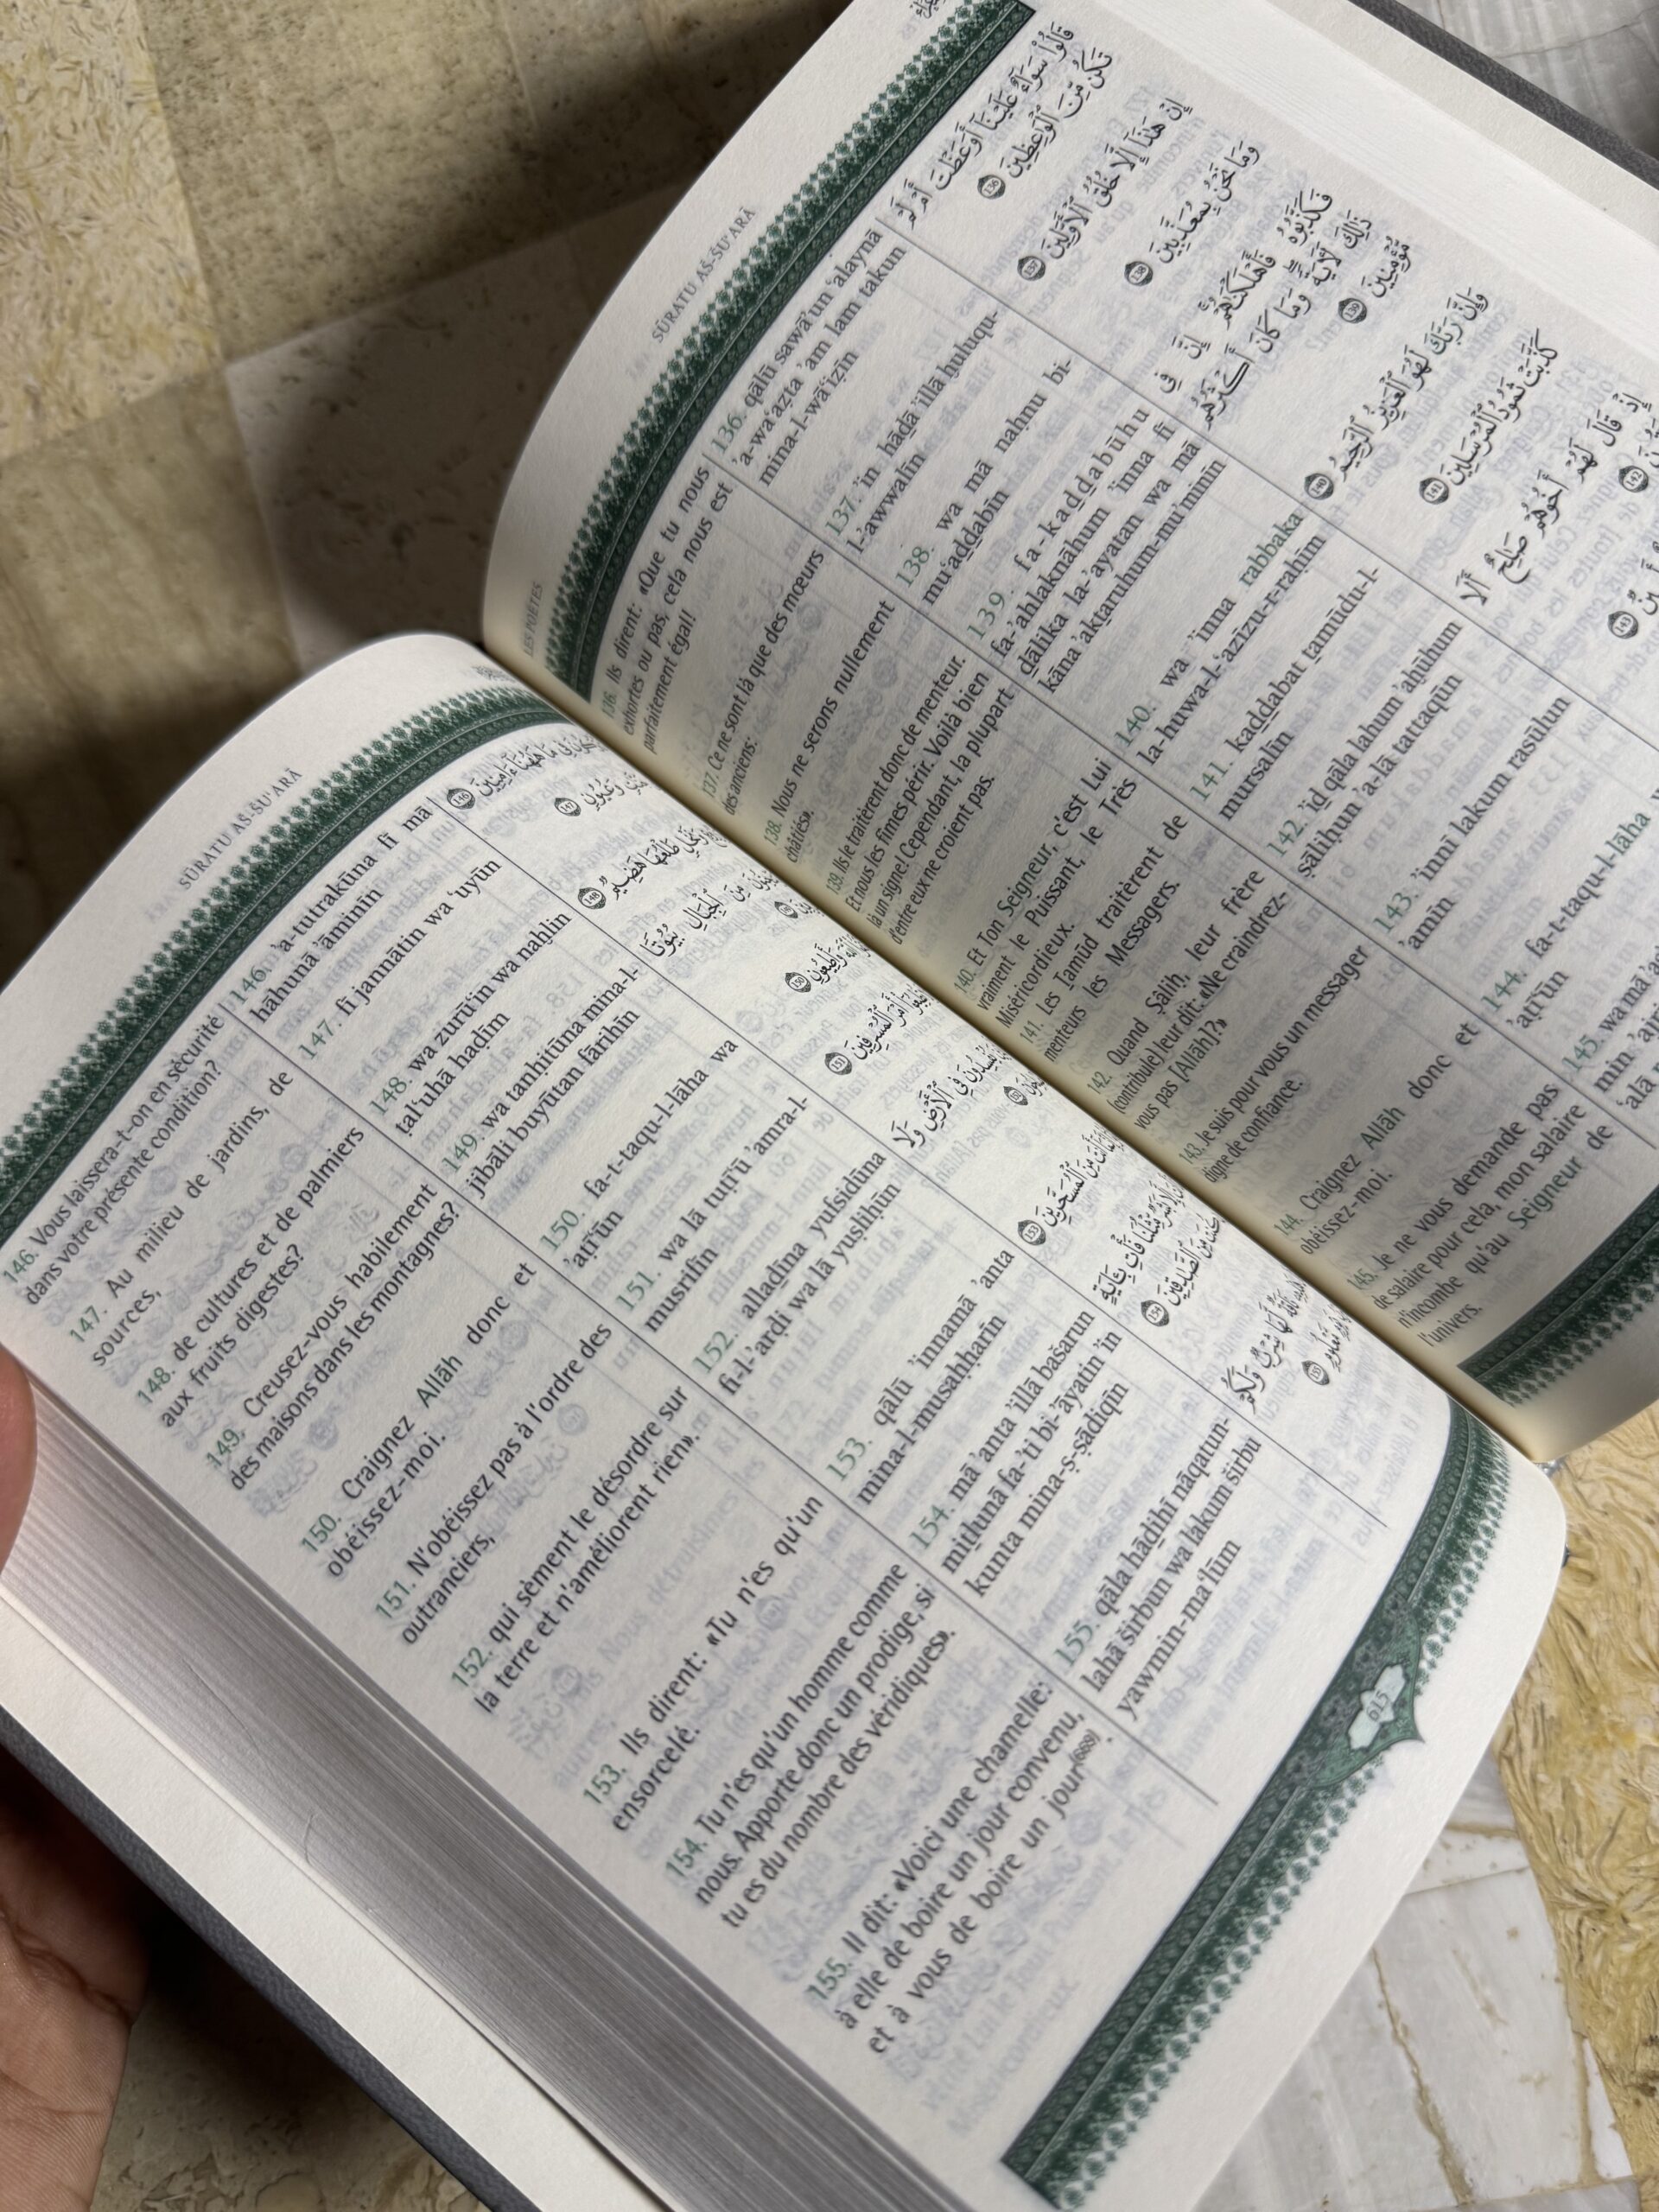 LES POÈTES
SŪRATU AŠ-ŠU‘ARĀ
136. Ils dirent: «Que tu nous
exhortes ou pas, cela nous est
parfaitement égal!
137. Ce ne sont là que des mœurs
des anciens:
138. Nous ne serons nullement
châtiés».
139. Ils le traitèrent donc de menteur.
Et nous les fîmes périr. Voilà bien
là un signe! Cependant, la plupart
d'entre eux ne croient pas.
140. Et Ton Seigneur, c'est Lui
vraiment le Puissant, le Très
Miséricordieux.
141. Les Ṯamūd traitèrent de
menteurs les Messagers.
142. Quand Ṣāliḥ, leur frère
[contribule] leur dit: «Ne craindrez-
vous pas [Allāh]?»
143. Je suis pour vous un messager
digne de confiance.
144. Craignez Allāh donc et
obéissez-moi.
145. Je ne vous demande pas
de salaire pour cela, mon salaire
n'incombe qu'au Seigneur de
l'univers.
136. qālū sawā'un ‘alaynā
'a-wa‘aẓta 'am lam takun
mina-l-wā‘iẓīn
137. 'in hāḏā 'illā ḫuluqu-
l-'awwalīn
138. wa mā naḥnu bi-
mu‘aḏḏabīn
139. fa-kaḏḏabūhu
fa-'ahlaknāhum 'inna fī
ḏālika la-'āyatan wa mā
kāna 'akṯaruhum-mu'minīn
140. wa 'inna rabbaka
la-huwa-l-‘azīzu-r-raḥīm
141. kaḏḏabat ṯamūdu-l-
mursalīn
142. 'iḏ qāla lahum 'aḫūhum
ṣāliḥun 'a-lā tattaqūn
143. 'innī lakum rasūlun
'amīn
144. fa-t-taqu-l-lāha
'aṭī‘ūn
145. wa mā
min 'ajri
‘alā
قَالُوا سَوَاءٌ عَلَيْنَا أَوَعَظْتَ أَمْ لَمْ
تَكُن مِّنَ الْوَاعِظِينَ 136
إِنْ هَٰذَا إِلَّا خُلُقُ الْأَوَّلِينَ 137
وَمَا نَحْنُ بِمُعَذَّبِينَ 138
فَكَذَّبُوهُ فَأَهْلَكْنَاهُمْ إِنَّ فِي
ذَٰلِكَ لَآيَةً وَمَا كَانَ أَكْثَرُهُم
مُّؤْمِنِينَ 139
وَإِنَّ رَبَّكَ لَهُوَ الْعَزِيزُ الرَّحِيمُ 140
كَذَّبَتْ ثَمُودُ الْمُرْسَلِينَ 141
إِذْ قَالَ لَهُمْ أَخُوهُمْ صَالِحٌ أَلَا
142
143
SŪRATU AŠ-ŠU‘ARĀ
146. Vous laissera-t-on en sécurité
dans votre présente condition?
147. Au milieu de jardins, de
sources,
148. de cultures et de palmiers
aux fruits digestes?
149. Creusez-vous habilement
des maisons dans les montagnes?
150. Craignez Allāh donc et
obéissez-moi.
151. N'obéissez pas à l'ordre des
outranciers,
152. qui sèment le désordre sur
la terre et n'améliorent rien».
153. Ils dirent: «Tu n'es qu'un
ensorcelé.
154. Tu n'es qu'un homme comme
nous. Apporte donc un prodige, si
tu es du nombre des véridiques».
155. Il dit: «Voici une chamelle:
à elle de boire un jour convenu,
et à vous de boire un jour(669).
146. 'a-tutrakūna fī mā
hāhunā 'āminīn
147. fī jannātin wa ‘uyūn
148. wa zurū‘in wa naḫlin
ṭal‘uhā haḍīm
149. wa tanḥitūna mina-l-
jibāli buyūtan fārihīn
150. fa-t-taqu-l-lāha wa
'aṭī‘ūn
151. wa lā tuṭī‘ū 'amra-l-
musrifīn
152. allaḏīna yufsidūna
fi-l-'arḍi wa lā yuṣliḥūn
153. qālū 'innamā 'anta
mina-l-musaḥḥarīn
154. mā 'anta 'illā bašarun
miṯlunā fa-'ti bi-'āyatin 'in
kunta mina-ṣ-ṣādiqīn
155. qāla hāḏihī nāqatun-
lahā širbun wa lakum širbu
yawmin-ma‘lūm
فِي مَا هَاهُنَا آمِنِينَ 146
وَعُيُونٍ 147
وَنَخْلٍ طَلْعُهَا هَضِيمٌ 148
مِنَ الْجِبَالِ بُيُوتًا
وَأَطِيعُونِ 150
أَمْرَ الْمُسْرِفِينَ 151
يُفْسِدُونَ فِي الْأَرْضِ وَلَا
مِنَ الْمُسَحَّرِينَ 153
بَشَرٌ مِّثْلُنَا فَأْتِ بِآيَةٍ
مِنَ الصَّادِقِينَ 154
لَّهَا شِرْبٌ وَلَكُمْ
155
615